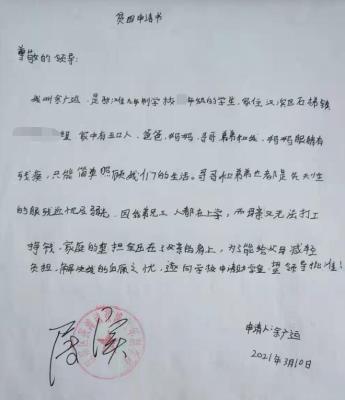 贫困申请书
尊敬的领导:
我叫余广运,是 九年制学校 年级的学生,家住汉滨区石梯镇
组 家中有五口人,爸爸,妈妈,哥哥弟弟和我,妈妈眼睛有
残疾,只能简单照顾我们的生活。哥哥和弟弟也都是先天性
的眼残 视力弱,因 弟兄三人都在上学,而母亲又无法打工
挣钱,家庭的重担全压在了父亲的身上,为了能给父母减轻
负担,解决我的后顾之忧,遂向学校申请助学金望领导批准!
申请人:余广运
2021年3月10日